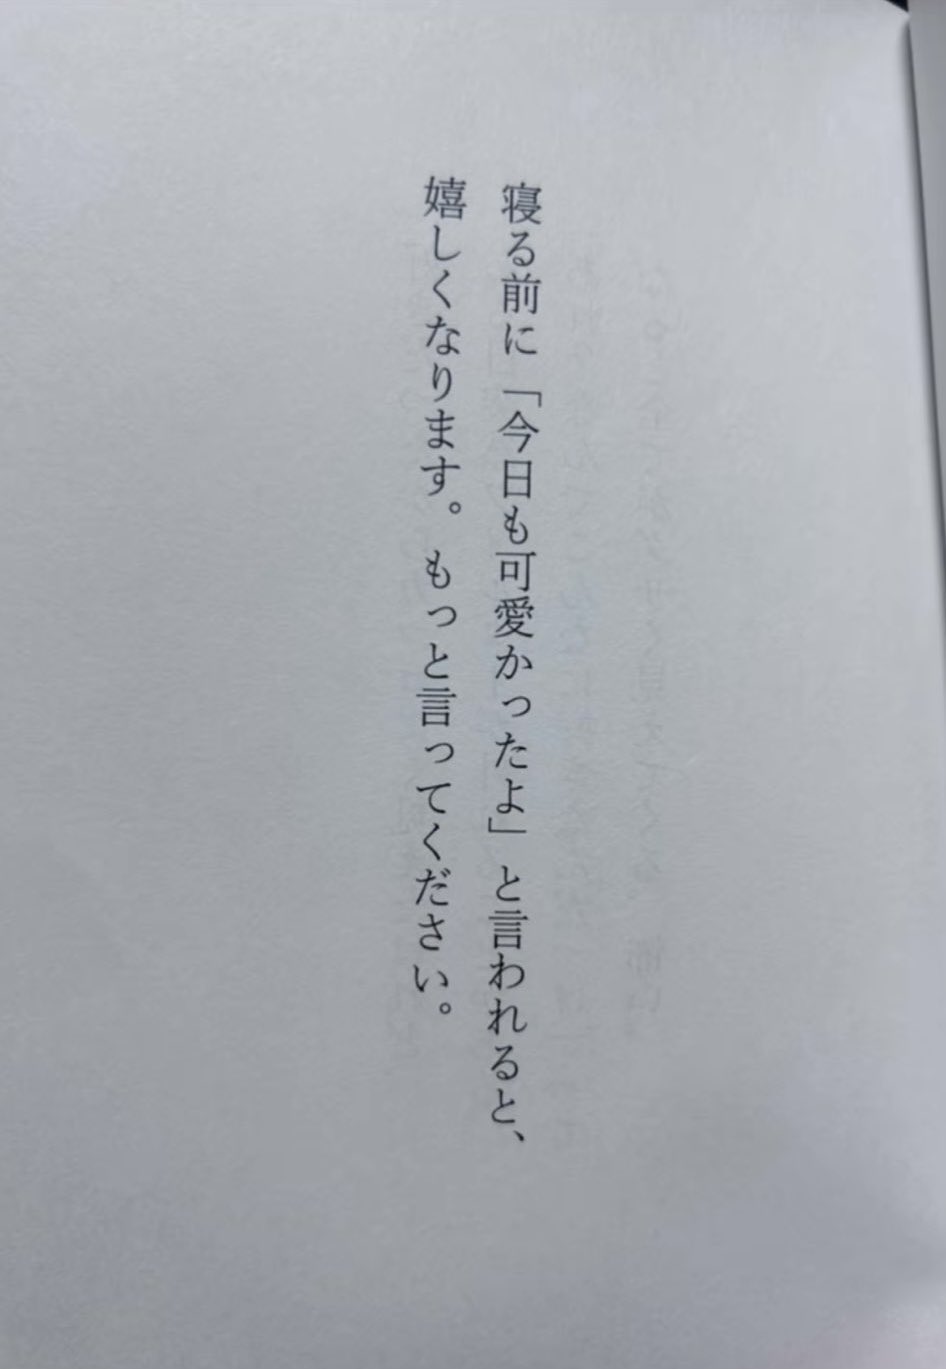 寝る前に「今日も可愛かったよ」と言われると、
嬉しくなります。もっと言ってください。